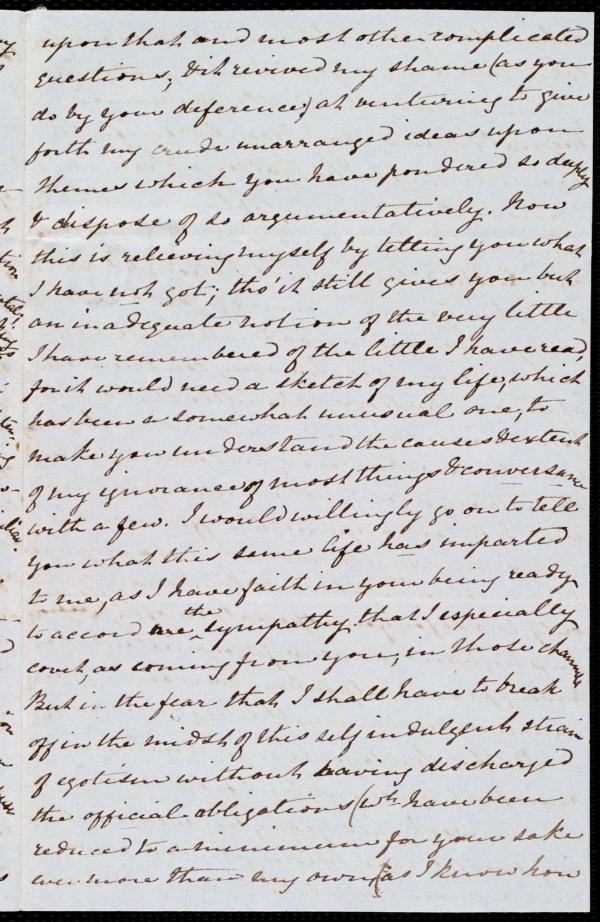 upon that and most other complicated
questions; & it revived my shame (as you
do by your deference) at venturing to give
forth my crude unarranged ideas upon
themes which you have pondered so deeply
& dispose of so argumentatively. Now
this is relieving myself by telling you what
I have not got; tho' it still gives you but
an inadequate notion of the very little
I have remembered of the little I have read,
for it would need a sketch of my life, which
has been a somewhat unusual one, to
make you understand the causes & extent
of my ignorance of most things & conversance
with a few. I would willingly go on to tell
you what this same life has imparted
to me, as I have faith in your being ready
to accord me, the sympathy that I especially
covet, as coming from you, in those channels
But in the fear that I shall have to break
off in the midst of this self indulgent strain
of egotism without having discharged
the official obligations (wh. have been
reduced to a minimum for your sake
even more than my own) as I know how